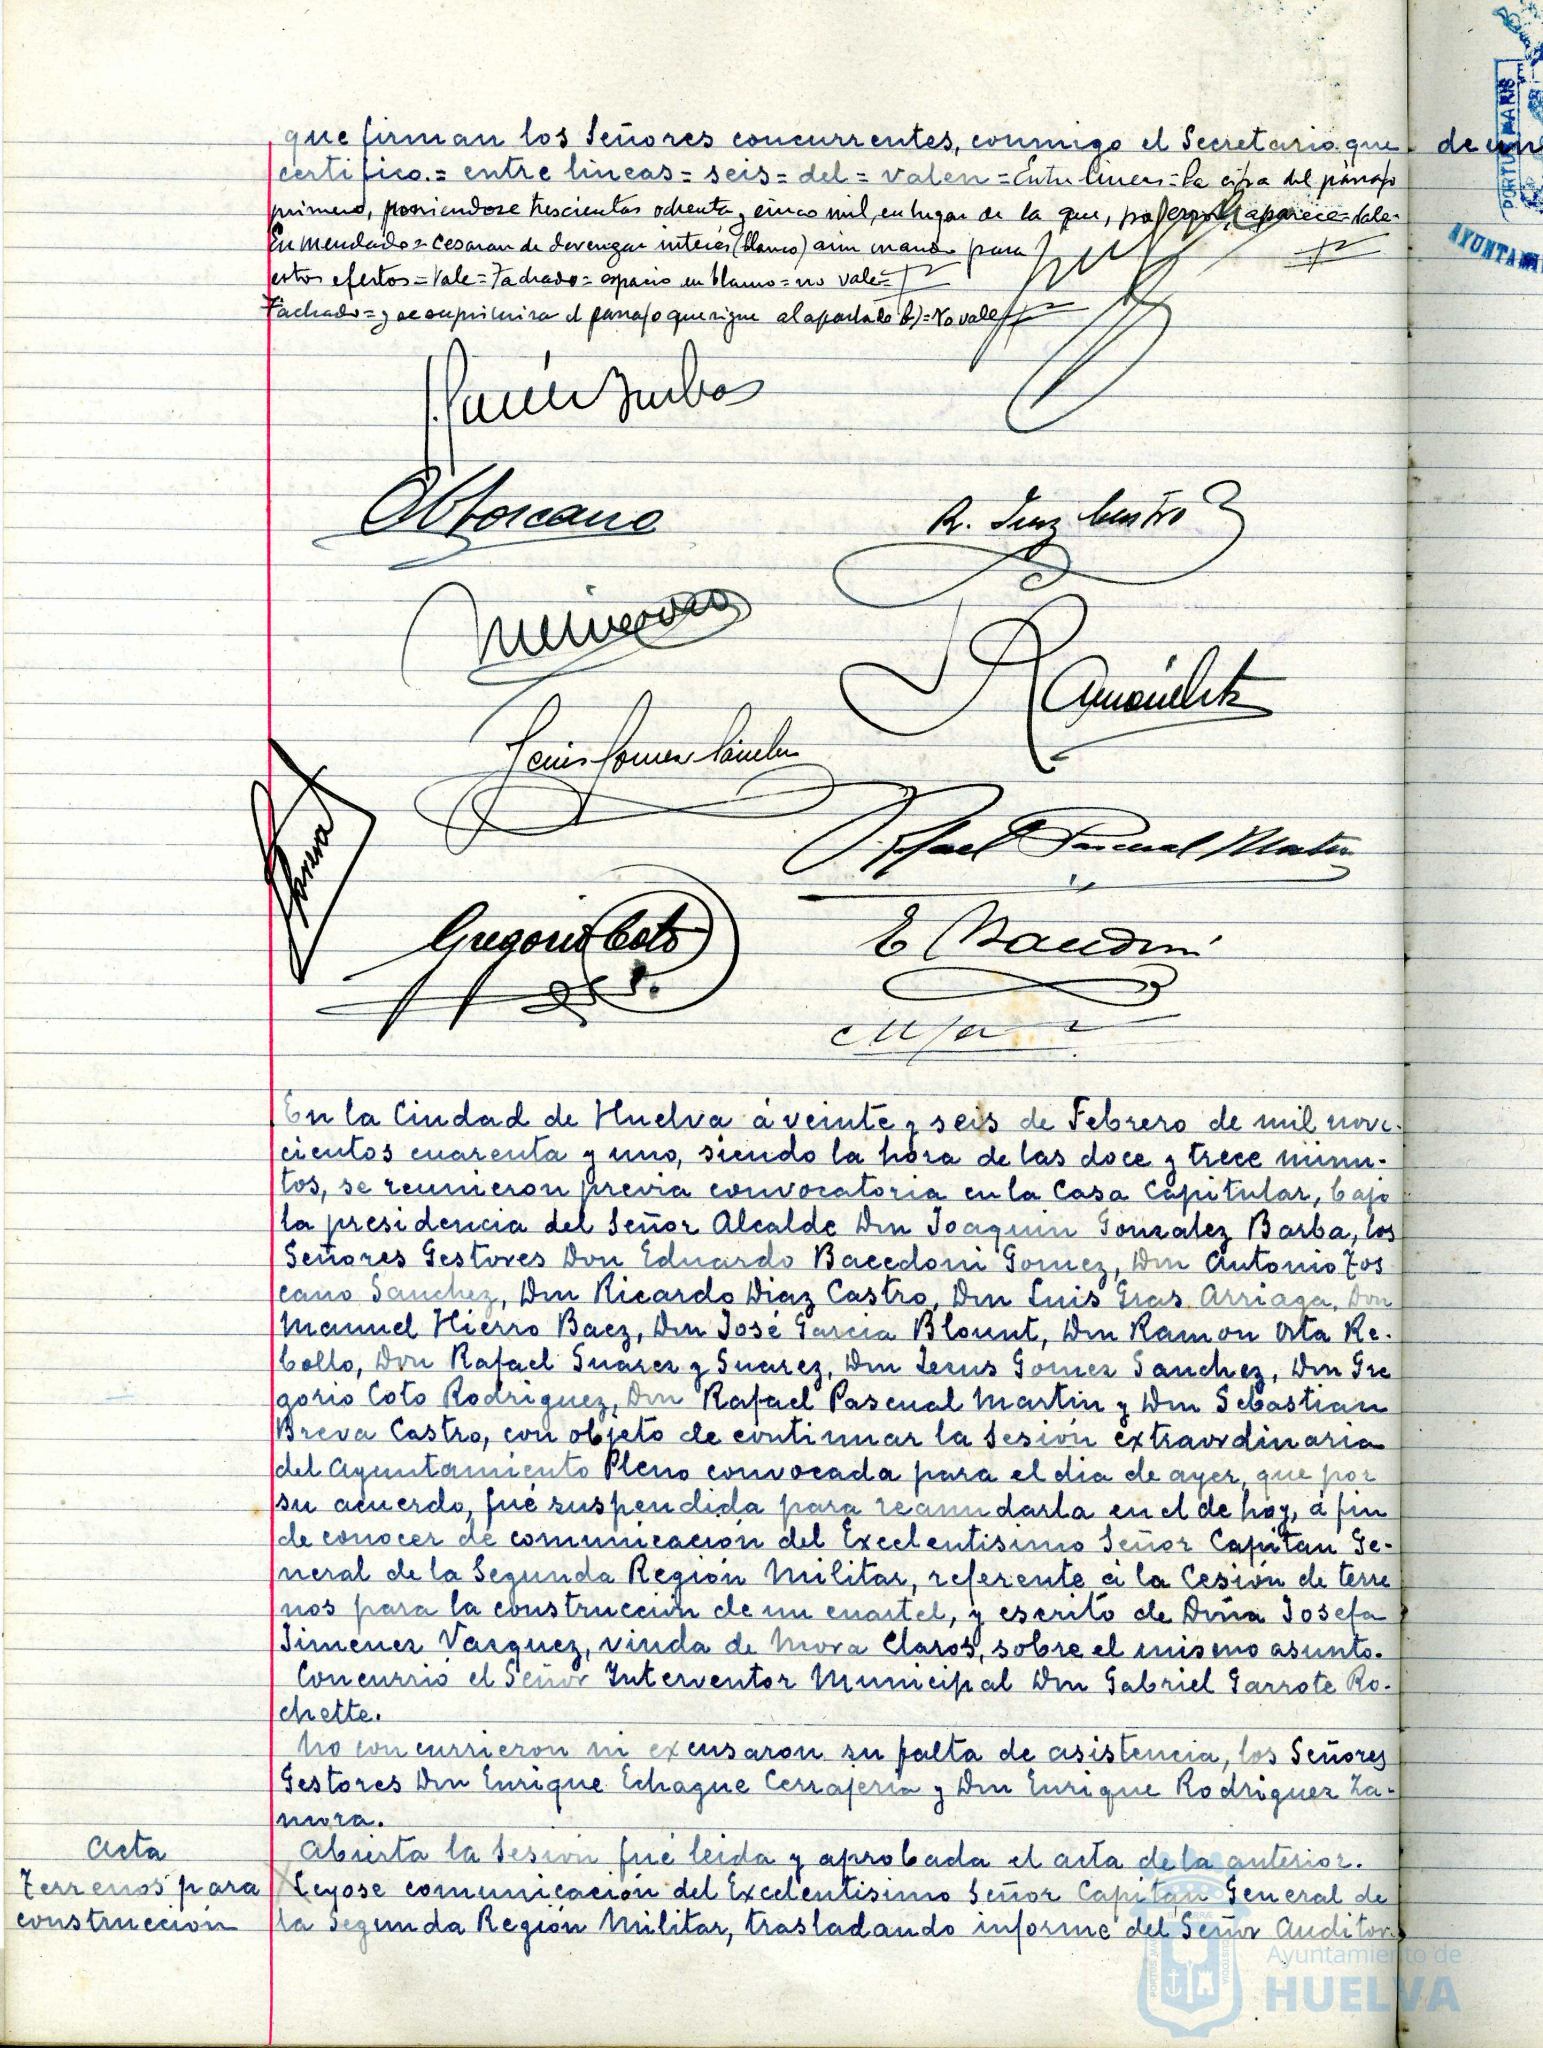 que firman los Señores concurrentes, conmigo el Secretario que
certifico.= entre lineas= seis= del= valen= Entre lineas= la cifra del párrafo
primero, poniendose trescientas ochenta y cinco mil, en lugar de la que, por error, aparece= Vale=
Enmendado= cesaran de devengar interés (blanco) aun cuando para
estos efectos= Vale= Tachado= espacio en blanco= no vale=
Tachado= y se suprimira el parrafo que sigue al apartado b)= No vale
A Toscano
R. Diaz Castro
Jesus Gomez Sánchez
Rafael Pascual Martin
Gregorio Coto
E Bacedoni
En la Ciudad de Huelva á veinte y seis de Febrero de mil nove-
cientos cuarenta y uno, siendo la hora de las doce y trece minu-
tos, se reunieron previa convocatoria en la Casa Capitular, bajo
la presidencia del Señor Alcalde Don Joaquin Gonzalez Barba, los
Señores Gestores Don Eduardo Bacedoni Gomez, Don Antonio Tos
cano Sanchez, Don Ricardo Diaz Castro, Don Luis Gras Arriaga, Don
Manuel Hierro Baez, Don José Garcia Blount, Don Ramon Orta Re-
bollo, Don Rafael Suarez y Suarez, Don Jesus Gomez Sanchez, Don Gre
gorio Coto Rodriguez, Don Rafael Pascual Martin y Don Sebastian
Breva Castro, con objeto de continuar la Sesión extraordinaria
del Ayuntamiento Pleno convocada para el dia de ayer, que por
su acuerdo, fué suspendida para reanudarla en el de hoy, á fin
de conocer de comunicación del Excelentisimo Señor Capitan Ge-
neral de la Segunda Región Militar, referente á la Cesión de terre
nos para la construcción de un cuartel, y escrito de Doña Josefa
Jimenez Vazquez, viuda de Mora Claros, sobre el mismo asunto.
Concurrió el Señor Interventor Municipal Don Gabriel Garrote Ro-
chette.
No concurrieron ni excusaron su falta de asistencia, los Señores
Gestores Don Enrique Echague Cerrajeria y Don Enrique Rodriguez Za-
mora.
Acta
Abierta la Sesion fué leida y aprobada el acta de la anterior.
Terrenos para
construcción
Leyose comunicación del Excelentisimo Señor Capitán General de
la Segunda Región Militar, trasladando informe del Señor Auditor
Ayuntamiento de
HUELVA